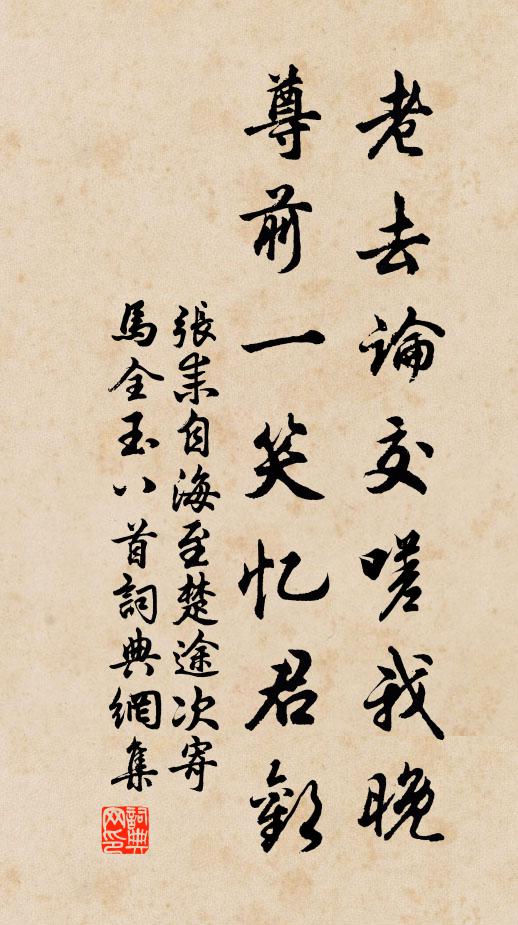 老去論交嗟我晚
尊前一笑忆君歡
張耒自海至楚途次寄
馬全玉八首詞典網集
詞典网印